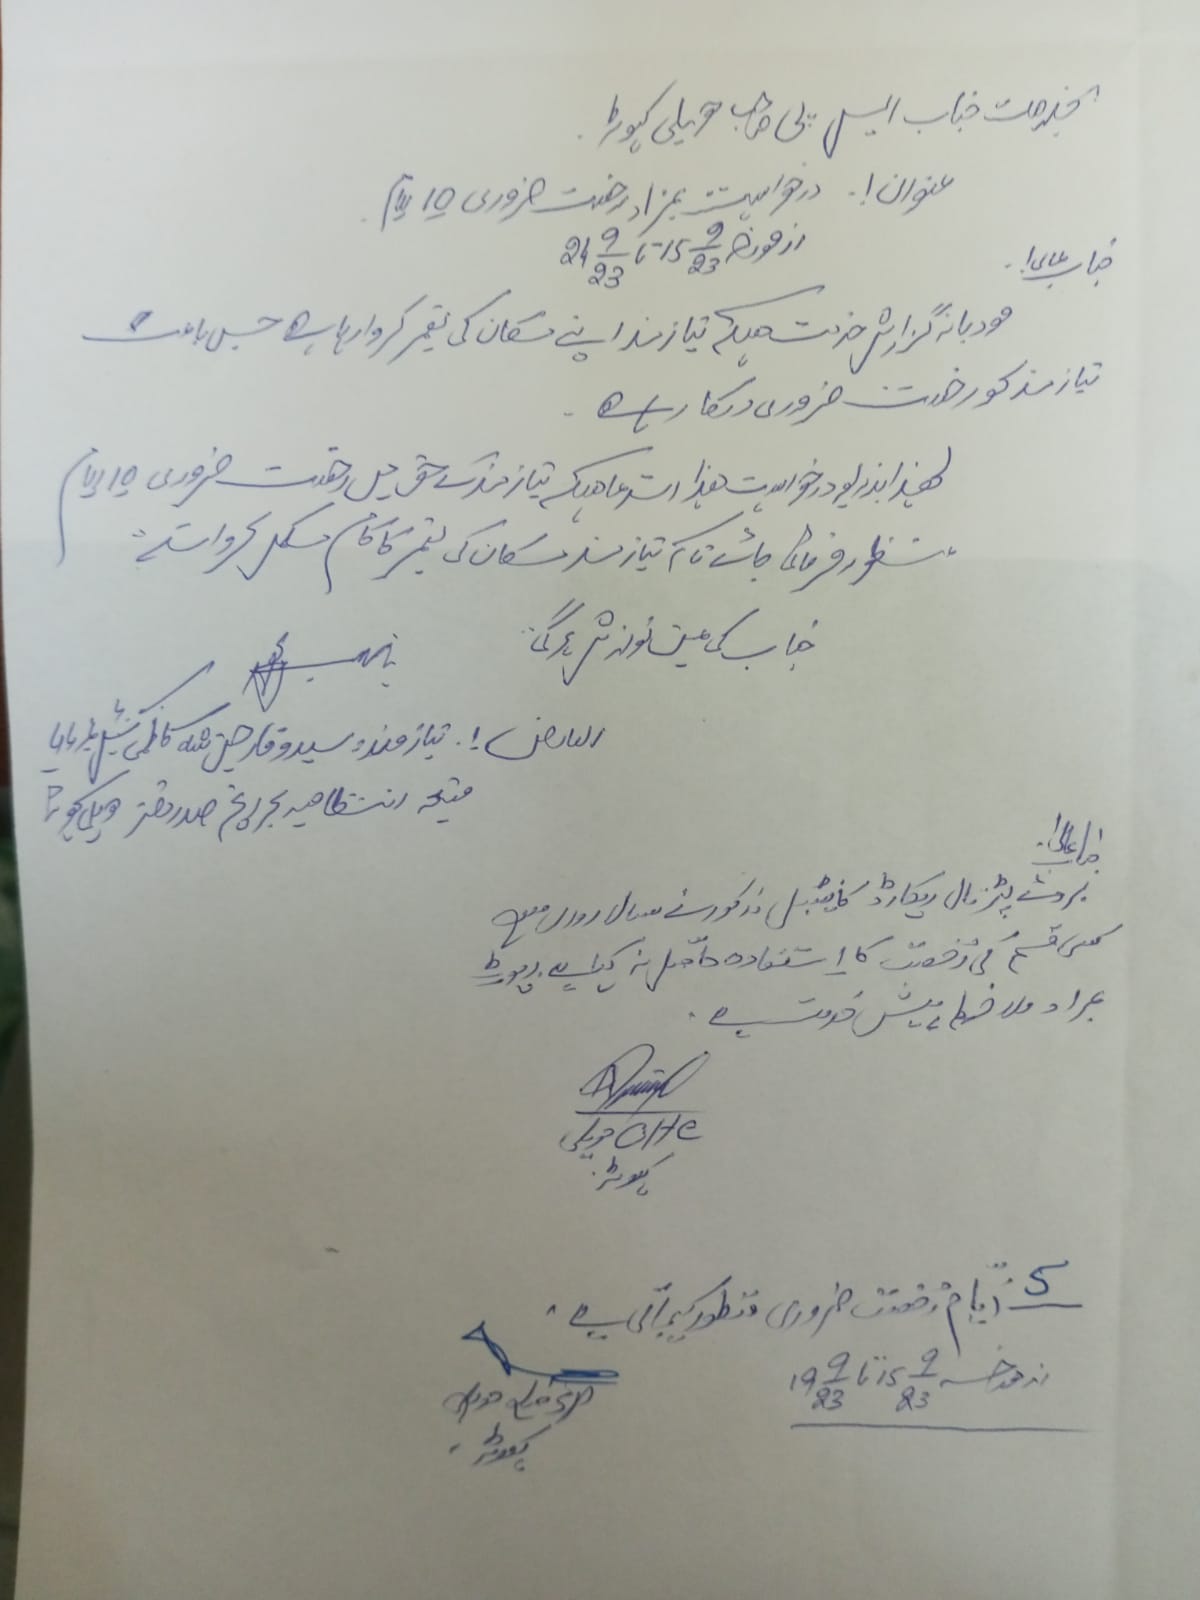 بخدمت جناب ایس پی صاحب حویلی کہوٹہ.
عنوان!. درخواست بمراد رخصت ضروری 10 ایام.
از مورخہ 15 9/23 تا 24 9/23
جناب عالی!.
مودبانہ گزارش خدمت ھیکہ نیازمند اپنے مکان کی تعمیر کروا رہا ہے جس باعث
نیازمند کو رخصت ضروری درکار ہے.
لھذا بذریعہ درخواست ھذا استدعا ھیکہ نیازمند کے حق میں رخصت ضروری 10 ایام
منظور فرمائی جائے تاکہ نیازمند مکان کی تعمیر کا کام مکمل کروا سکے.
جناب کی عین نوازش ہو گی.
العارض!. نیازمند سید وقار حسین شاہ کاظمی کنسٹیبل
متعینہ انتظامیہ برانچ صدر دفتر حویلی کہوٹہ
جناب عالی!.
بروئے ریکارڈ کانسٹیبل مذکور نے سال رواں میں
کسی قسم کی رخصت کا استفادہ حاصل نہ کیا ہے. رپورٹ
بمراد ملاحظہ پیش خدمت ہے.
OHC حویلی
کہوٹہ.
5 ایام رخصت ضروری منظور کی جاتی ہے.
از مورخہ 15 9/23 تا 19 9/23
حویلی
کہوٹہ.